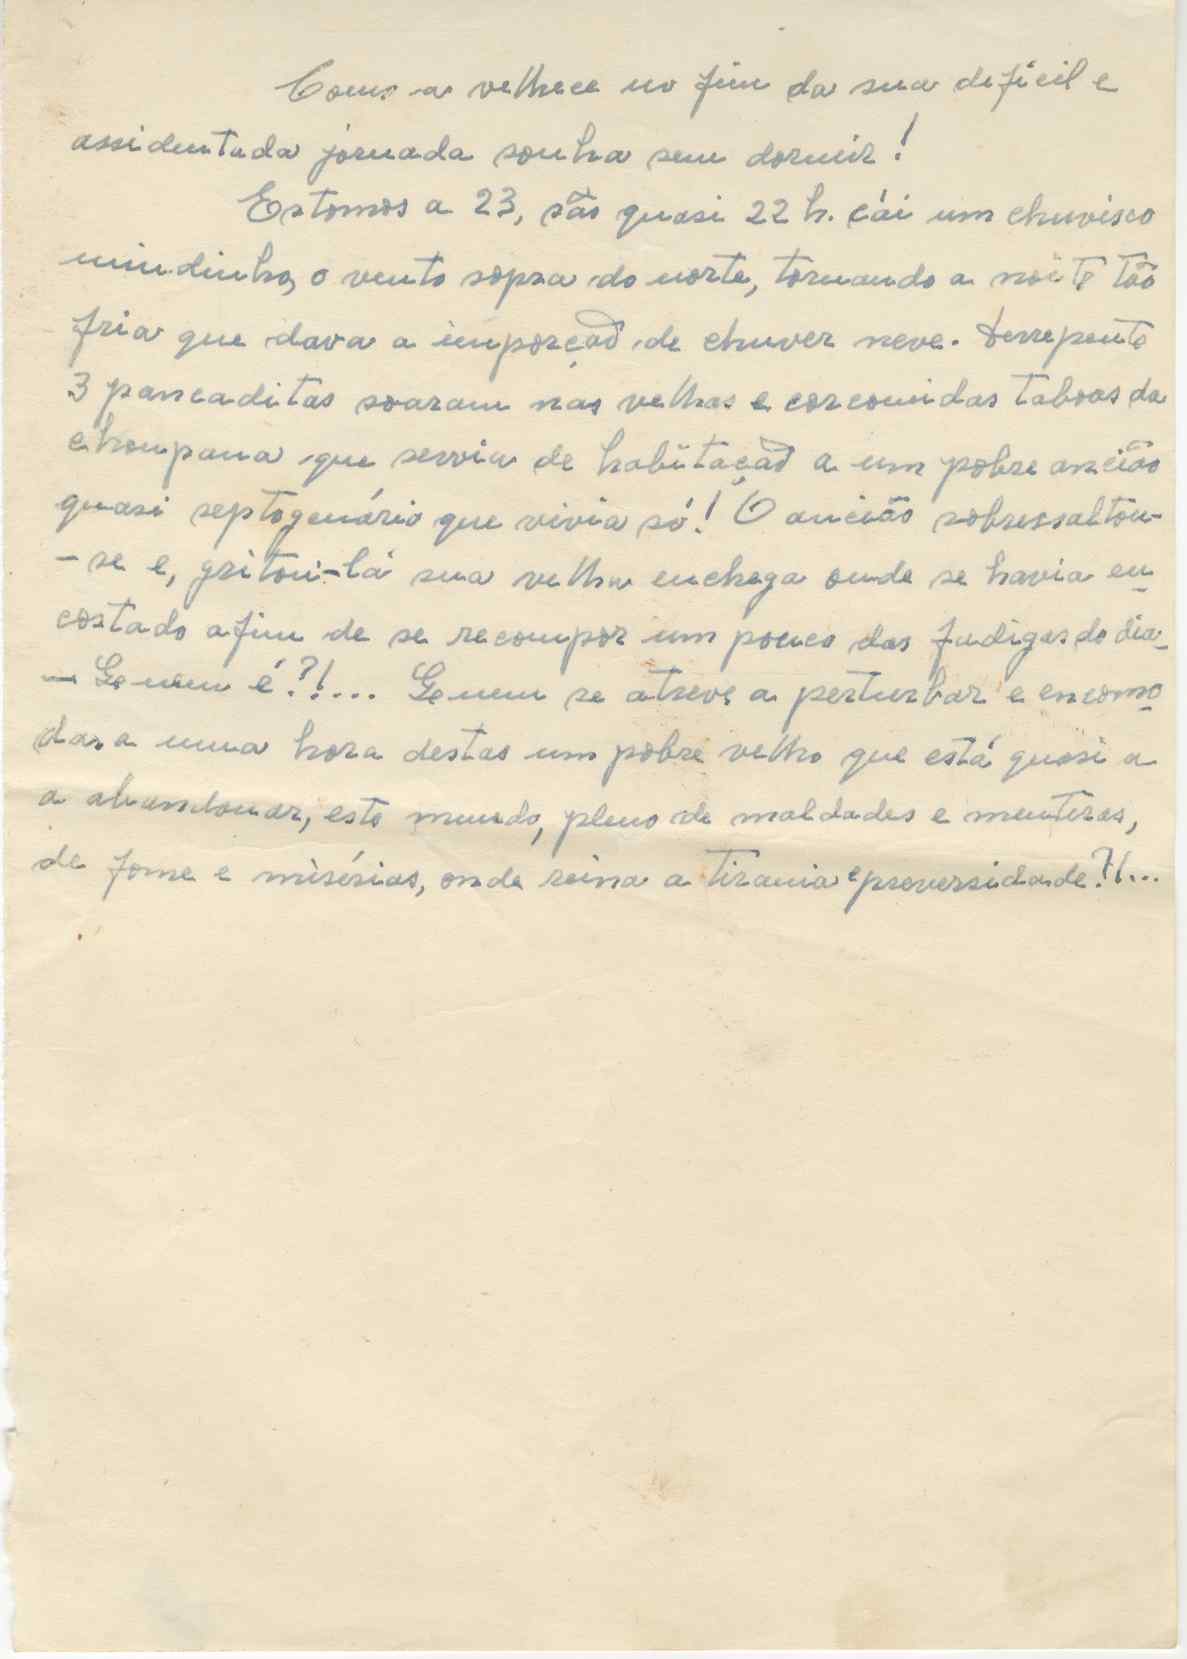 Como a velhece no fim da sua defícil e
assidentada jornada sonha sem dormir!
Estamos a 23, são quasi 22 h. cái um chuvisco
miudinho, o vento sopra do norte, tornando a noite tão
fria que dava a imporçaõ de chuver neve. derrepente
3 pancaditas soaram nas velhas e corcomidas taboas da
choupana que servia de habitaçaõ a um pobre ancião
quasi septogenário que vivia só! O ancião sobressaltou-
-se e, gritou-lá sua velha enchega onde se havia en-
costado afim de se recompor um pouco das fadigas do dia-
- Quem é?!... Quem se atreve a perturbar e encomo-
dar a uma hora destas um pobre velho que está quasi a
a abandonar, este mundo, pleno de maldades e mentiras,
de fome e misérias, onde reina a tirania e preversidade?!...